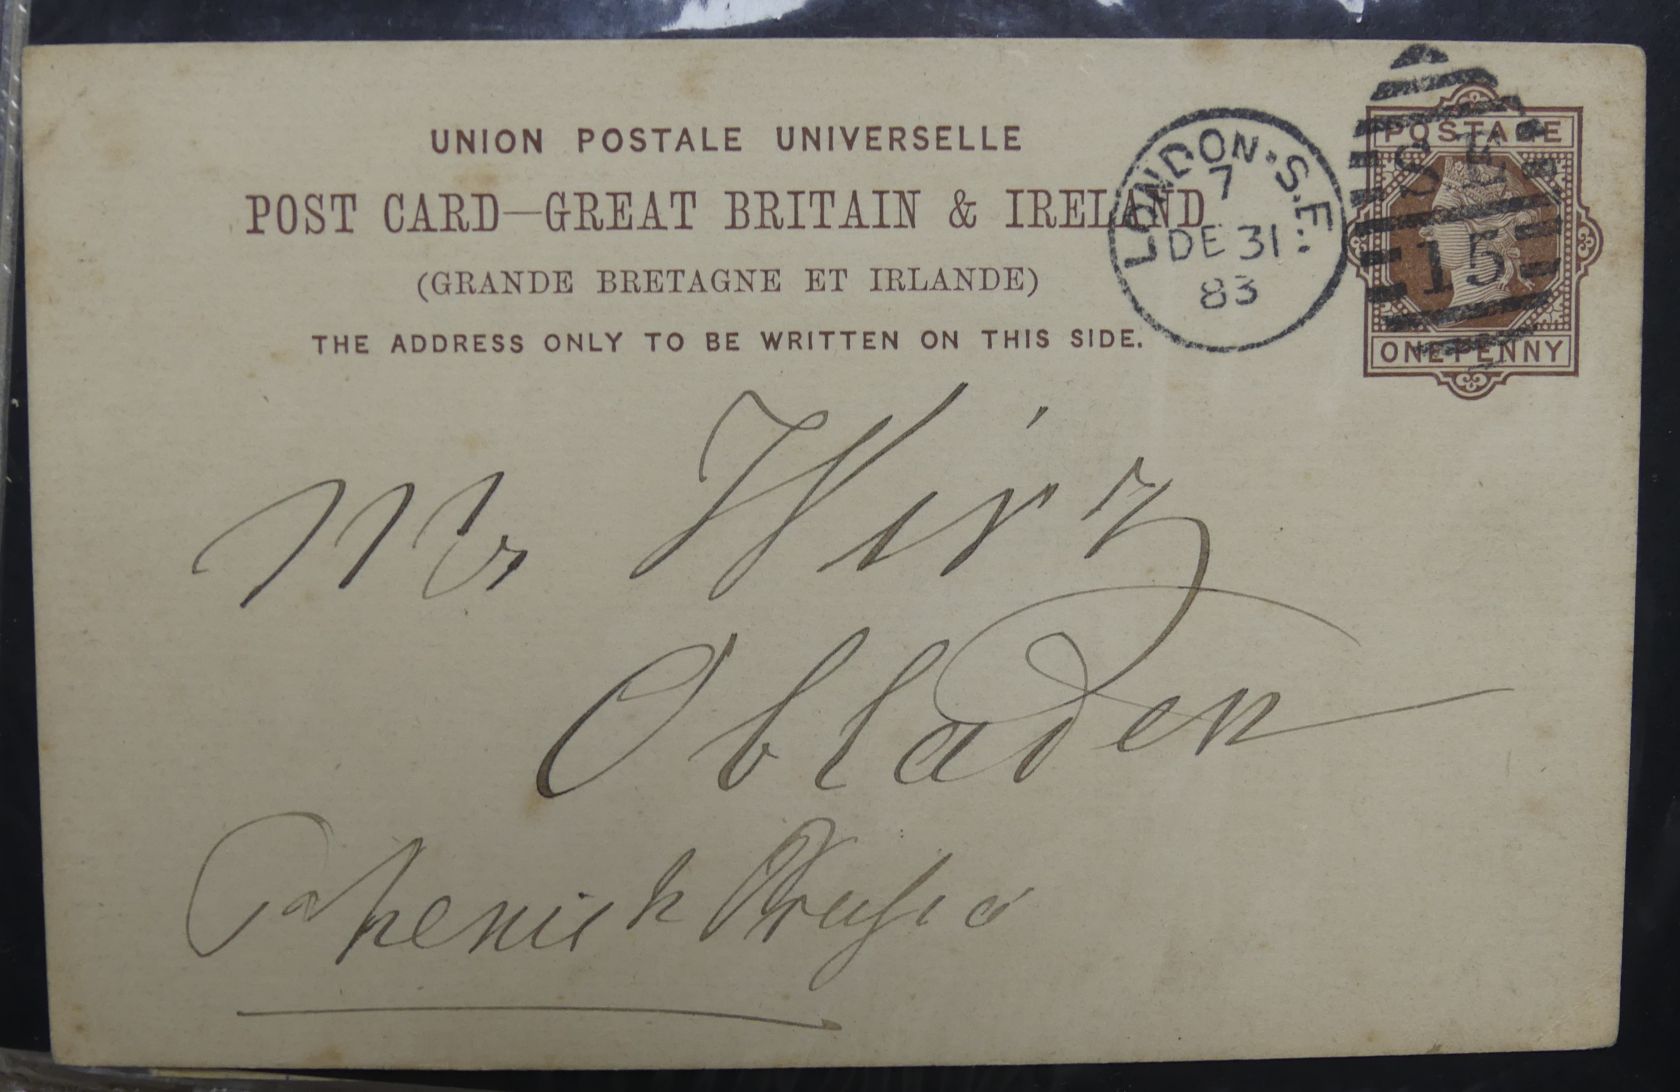 UNION POSTALE UNIVERSELLE
POST CARD—GREAT BRITAIN & IRELAND
(GRANDE BRETAGNE ET IRLANDE)
THE ADDRESS ONLY TO BE WRITTEN ON THIS SIDE.
LONDON·S.E.
7
DE 31
83
POSTAGE
SE
15
ONE PENNY
Mr Wirz
Obladen
Rhenish Prussia